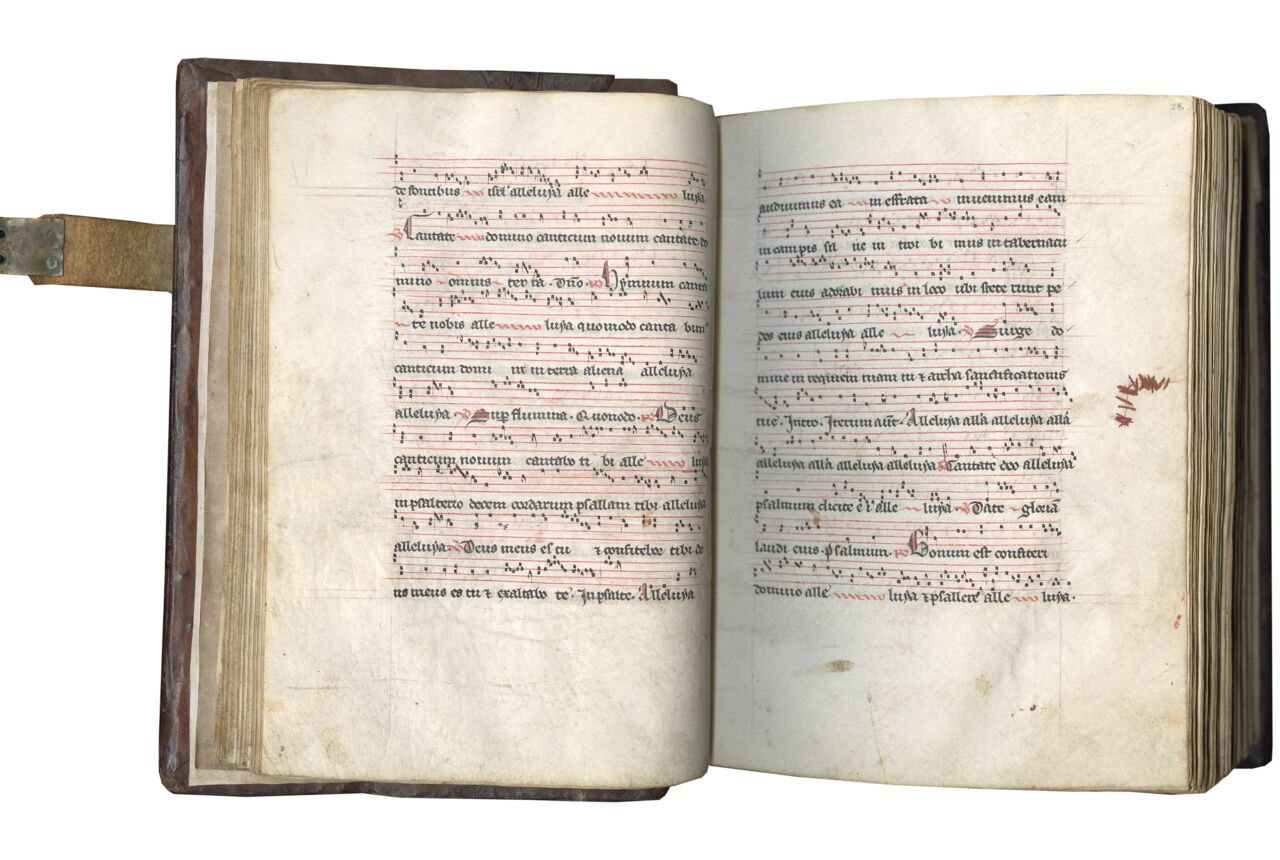 de fontibus isrl' alleluya alle luya.
℣ Cantate domino canticum novum cantate do
mino omnis terra. Dn̄o. ℞ Hymnum canta
te nobis alle luya quomodo canta bim'
canticum domi ni in terra aliena alleluya
alleluya ℣ Sup flumina. Quomodo. ℞ Deus
canticum novum cantabo ti bi alle luya
in psalterio decem cordarum psallam tibi alleluya
alleluya. ℣ Deus meus es tu ⁊ confitebor tibi de
us meus es tu ⁊ exaltabo te. In psalte. Alleluya
28
audivimus ea in effrata invenimus eam
in campis sil ve in troi bi mus in tabernacu
lum eius adorabi mus in loco ubi stete runt pe
des eius alleluya alle luya. ℣ Surge do
mine in requiem tuam tu ⁊ archa sanctificationis
tue. Intro. Iterum aūt. Alleluya all'a alleluya all'a
alleluya all'a alleluya alleluya Cantate deo alleluya
psalmum dicite ei alle luya. ℣ Date gloriā
laudi eius. Psalmum. ℞ Bonum est confiteri
domino alle luya ⁊ psallere alle luya.